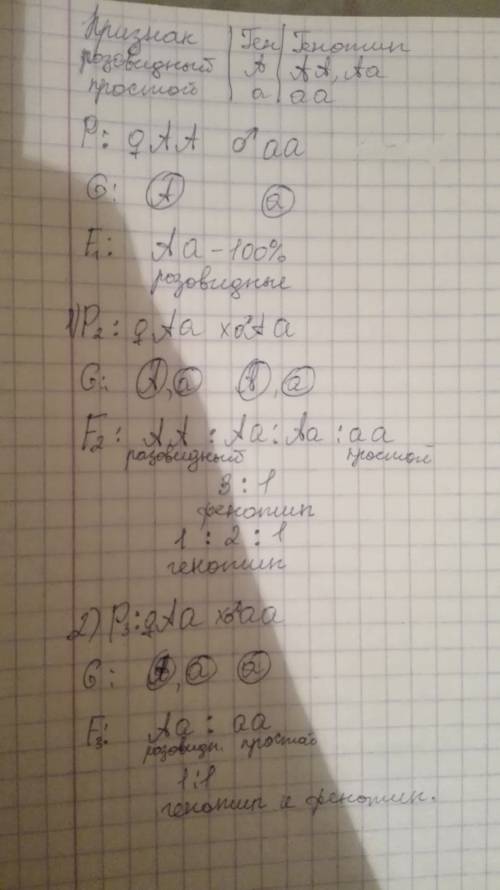 Признак | Ген | Генотип
розовидный | А | АА, Аа
простой | а | аа
P: ♀ АА ♂ аа
G: А а
F₁: Аа – 100%
розовидные
1) P₂: ♀ Аа х ♂ Аа
G: А, а А, а
F₂: АА : Аа : Аа : аа
розовидный простой
3 : 1
фенотип
1 : 2 : 1
генотип
2) P₃: ♀ Аа х ♂ аа
G: А, а а
F₃: Аа : аа
розовидн. простой
1:1
генотип и фенотип.